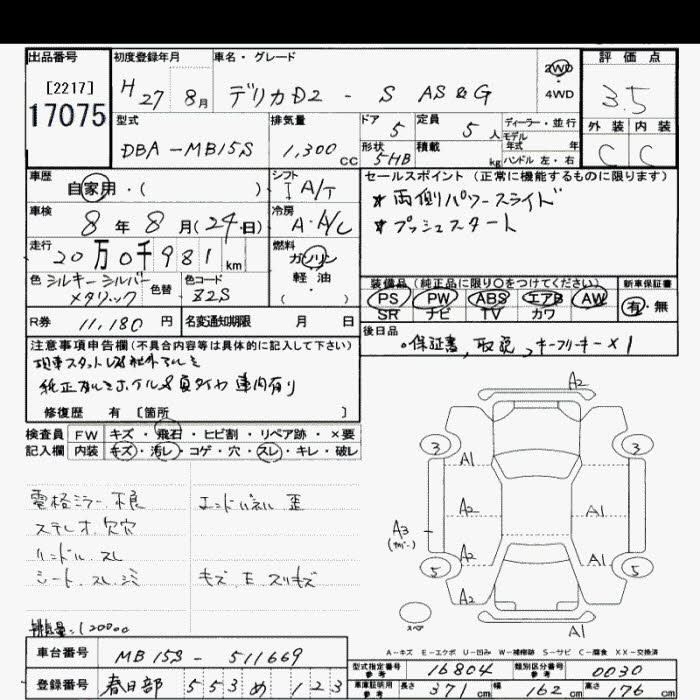 出品番号 初度登録年月 車名・グレード 2WD 評価点
[2217] H27 8月 デリカD2 - S AS&G ・ 4WD 3.5
17075
型式 排気量 ドア 定員 ディーラー・並行 外装 内装
DBA-MB15S 1,300cc 5 5人 モデル年式 年 C C
形状 5HB 積載 kg ハンドル 左・右
車歴 シフト セールスポイント (正常に機能するものに限ります)
自家用・( ) I A/T * 両側パワースライド
車検 冷房 * プッシュスタート
8年8月(24日) A・A/C
走行 燃料
20万0千981km ガソリン
軽油・( )
色 シルキーシルバーメタリック 色替 色コード Z2S
装備品 (純正品に限り〇をつけてください) 新車保証書
PS PW ABS エアB AW 有・無
SR ナビ TV カワ
R券 11,180円 名変通知期限 月 日
後日品
・保証書, 取説, キーフリーキー×1
注意事項申告欄 (不具合内容等は具体的に記入して下さい)
修復歴 有 [箇所 ]
検査員 FW キズ・飛石・ヒビ割・リペア跡・×要
記入欄 内装 キズ・汚レ・コゲ・穴・スレ・キレ・破レ
電格ミラー不良 エンドパネル歪
ステレオ欠穴
ハンドルスレ
シートスレシミ キズ E スリキズ
排気量:1200cc
A2
3 3
A1
A2 A1
A3
A2 A1
5 5
A2
スペア A1
A-キズ E-エクボ U-凹み W-補修跡 S-サビ C-腐食 XX-交換済
車台番号 MB15S-511669
登録番号 春日部 553 め 123
型式指定番号 参考 16804 類別区分番号 参考 0030
車庫証明用 参考 長さ 371cm 幅 162cm 高さ 176cm